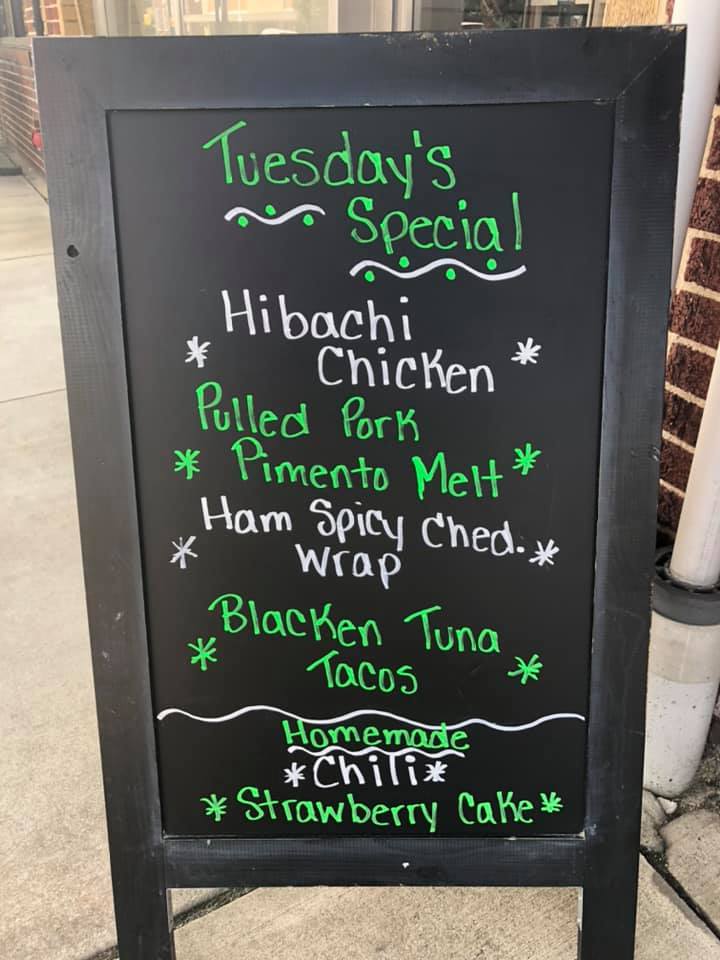 Tuesday's
Special
Hibachi
Chicken
Pulled Pork
Pimento Melt
Ham Spicy Ched.
Wrap
Blacken Tuna
Tacos
Homemade
Chili
Strawberry Cake